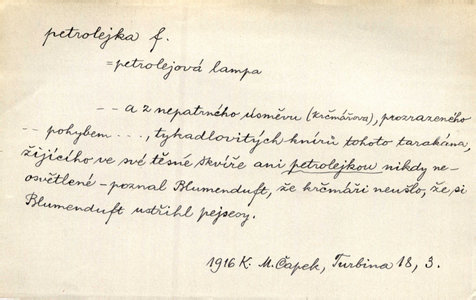 petrolejka f.
=petrolejová lampa
-- a z nepatrného úsměvu (krčmářova), prozrazeného
-- pohybem ..., tykadlovitých knírů tohoto tarakána,
žijícího ve své těsné skvíře ani petrolejkou nikdy ne-
osvětlené - poznal Blumenduft, že krčmáři neušlo, že si
Blumenduft ustřihl pejsesy.
1916 K. M. Čapek, Turbina 18, 3.